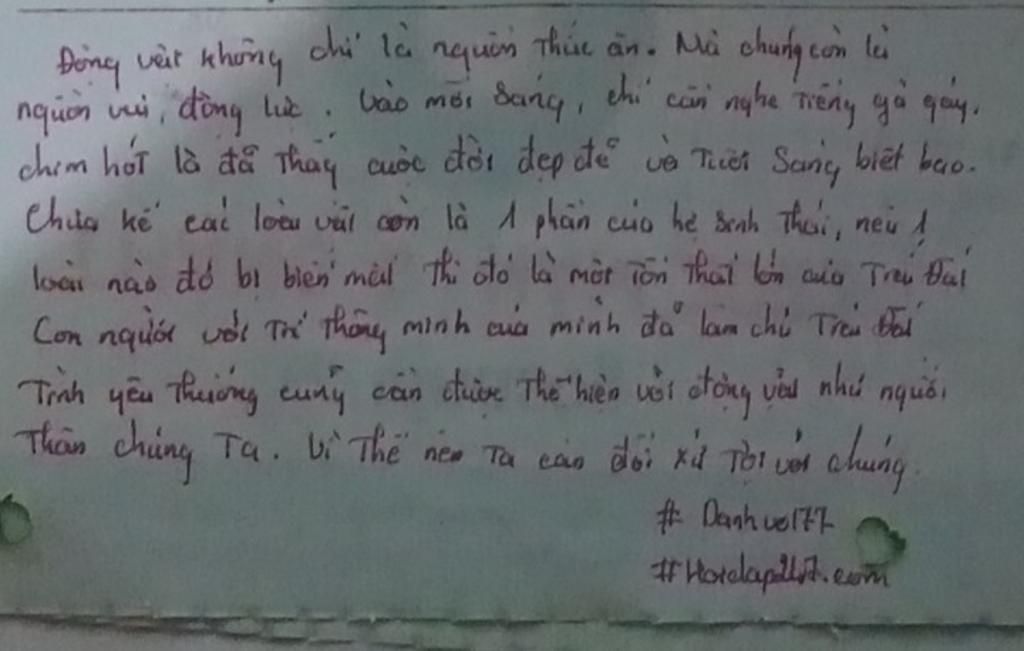 Động vật không chỉ là nguồn thức ăn. Mà chúng còn là
nguồn vui, động lực. Vào mỗi sáng, chỉ cần nghe tiếng gà gáy,
chim hót là đã thấy cuộc đời đẹp đẽ và tươi sáng biết bao.
Chưa kể các loài vật còn là 1 phần của hệ sinh thái, nếu 1
loài nào đó bị biến mất thì đó là một tổn thất lớn của Trái Đất
Con người với trí thông minh của mình đã làm chủ Trái Đất
Tình yêu thương cũng cần được thể hiện với động vật như người
thân chúng ta. Vì thế nên ta cần đối xử tốt với chúng.
# Danhvo177
#Hoidap247.com